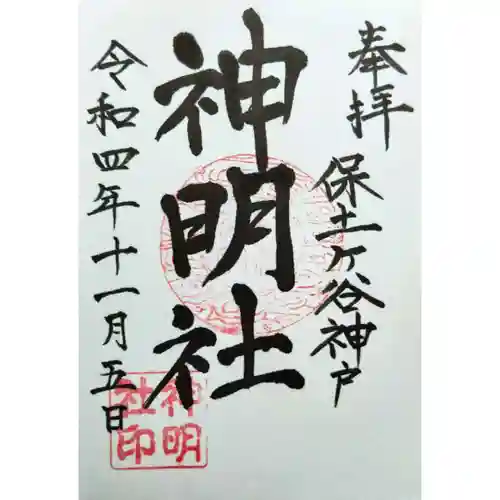 奉拝
保土ヶ谷神戸
神明社
令和四年十一月五日
神明
社印